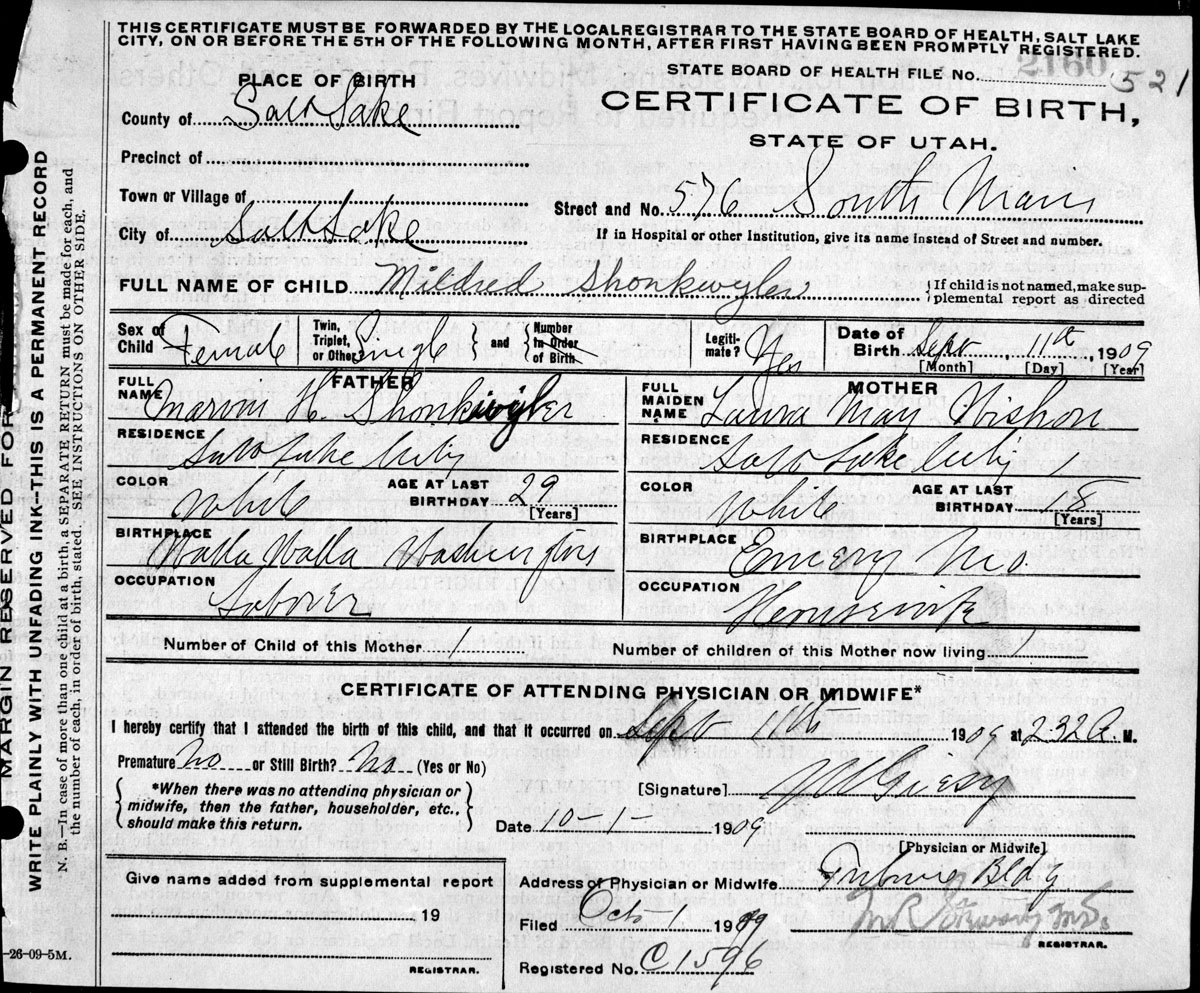 THIS CERTIFICATE MUST BE FORWARDED BY THE LOCAL REGISTRAR TO THE STATE BOARD OF HEALTH, SALT LAKE
CITY, ON OR BEFORE THE 5TH OF THE FOLLOWING MONTH, AFTER FIRST HAVING BEEN PROMPTLY REGISTERED.
STATE BOARD OF HEALTH FILE No. 521
PLACE OF BIRTH
CERTIFICATE OF BIRTH,
STATE OF UTAH.
County of Salt Lake
Precinct of
Town or Village of
Street and No. 576 South Main
City of Salt Lake
If in Hospital or other Institution, give its name instead of Street and number.
FULL NAME OF CHILD Mildred Shonkwyler
{If child is not named, make sup-
plemental report as directed
Sex of Child Female Twin, Triplet, or Other? Single } and { Number in Order of Birth Legiti-mate? Yes Date of Birth Sept, 11th, 1909
[Month] [Day] [Year]
FATHER
FULL NAME Marion H. Shonkwyler
RESIDENCE Salt Lake City
COLOR White AGE AT LAST BIRTHDAY 29
[Years]
BIRTHPLACE Walla Walla Washington
OCCUPATION Laborer
MOTHER
FULL MAIDEN NAME Laura May Wishon
RESIDENCE Salt Lake City
COLOR White AGE AT LAST BIRTHDAY 18
[Years]
BIRTHPLACE Emery Mo.
OCCUPATION Housewife
Number of Child of this Mother 1 Number of children of this Mother now living 1
CERTIFICATE OF ATTENDING PHYSICIAN OR MIDWIFE*
I hereby certify that I attended the birth of this child, and that it occurred on Sept 11th 1909 at 2:32 A. M.
Premature No or Still Birth? No (Yes or No)
{*When there was no attending physician or
midwife, then the father, householder, etc.,
should make this return.}
[Signature]
Date 10-1- 1909
[Physician or Midwife]
Give name added from supplemental report
19
REGISTRAR.
Address of Physician or Midwife Tribune Bldg
Filed Oct 1 1909
REGISTRAR.
Registered No. C1596
-26-09-5M.
MARGIN RESERVED FOR
WRITE PLAINLY WITH UNFADING INK--THIS IS A PERMANENT RECORD
N. B.—In case of more than one child at a birth, a SEPARATE RETURN must be made for each, and
the number of each, in order of birth, stated. SEE INSTRUCTIONS ON OTHER SIDE.